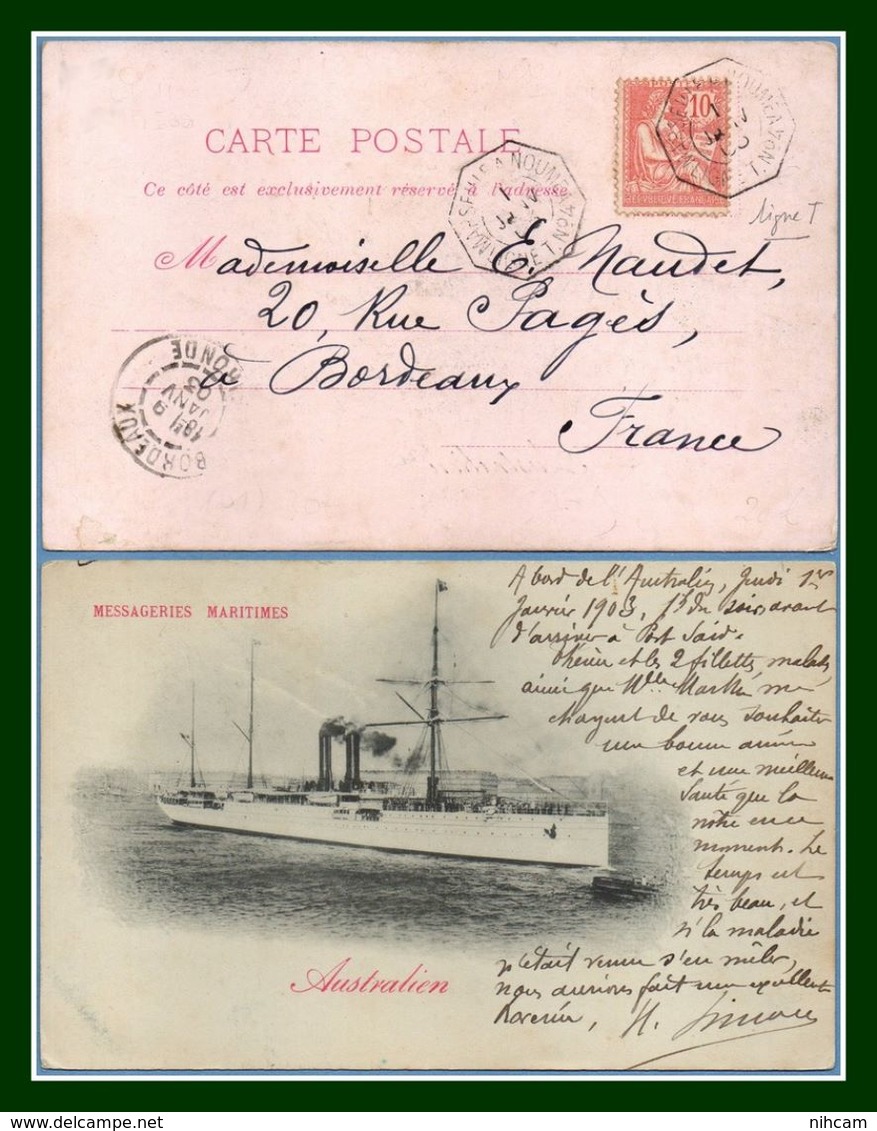 CARTE POSTALE
Ce côté est exclusivement réservé à l'adresse
10
REPUBLIQUE FRANÇAISE
MARSEILLE A NOUMEA
LIGNE T. Nº4
ligne T
Mademoiselle E. Naudet,
20, Rue Pagès,
à Bordeaux
France
BORDEAUX
GIRONDE
9
JANV
03
MESSAGERIES MARITIMES
A bord de l'Australien, Jeudi 1er
Janvier 1903, 1h du soir, avant
d'arriver à Port Saïd.
et les 2 fillettes malades
ainsi que Mlle me
chargent de vous souhaiter
une bonne année
et une meilleure
santé que la
nôtre en ce
moment. Le
temps est
très beau, et
si la maladie
n'était venue s'en mêler,
nous aurions fait une excellente
traversée, H. Simon
Australien
www.delcampe.net
nihcam